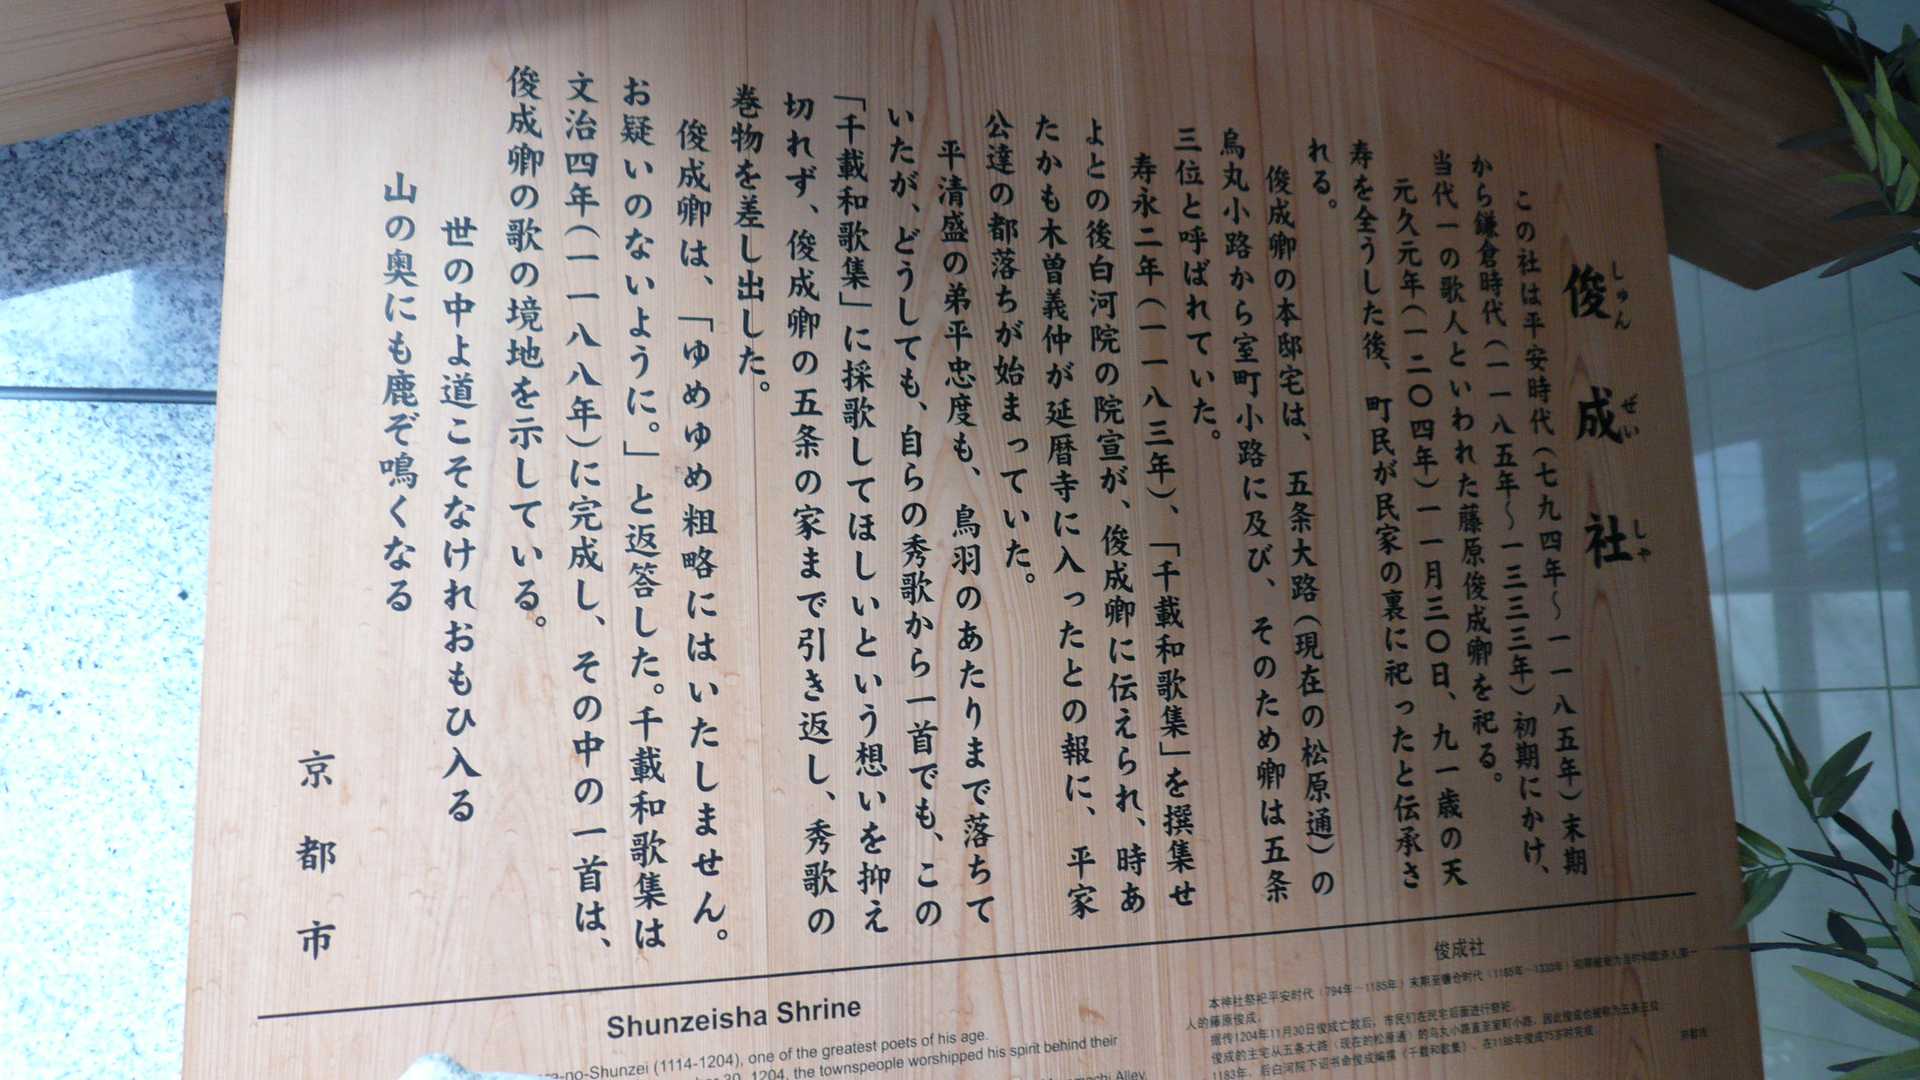 俊成社
しゅんぜいしゃ
この社は平安時代(七九四年～一一八五年)末期
から鎌倉時代(一一八五年～一三三三年)初期にかけ、
当代一の歌人といわれた藤原俊成卿を祀る。
元久元年(一二〇四年)一一月三〇日、九一歳の天
寿を全うした後、町民が民家の裏に祀ったと伝承さ
れる。
俊成卿の本邸宅は、五条大路(現在の松原通)の
烏丸小路から室町小路に及び、そのため卿は五条
三位と呼ばれていた。
寿永二年(一一八三年)、「千載和歌集」を撰集せ
よとの後白河院の院宣が、俊成卿に伝えられ、時あ
たかも木曽義仲が延暦寺に入ったとの報に、平家
公達の都落ちが始まっていた。
平清盛の弟平忠度も、鳥羽のあたりまで落ちて
いたが、どうしても、自らの秀歌から一首でも、この
「千載和歌集」に採歌してほしいという想いを抑え
切れず、俊成卿の五条の家まで引き返し、秀歌の
巻物を差し出した。
俊成卿は、「ゆめゆめ粗略にはいたしません。
お疑いのないように。」と返答した。千載和歌集は
文治四年(一一八八年)に完成し、その中の一首は、
俊成卿の歌の境地を示している。
世の中よ道こそなけれおもひ入る
山の奥にも鹿ぞ鳴くなる
京都市
Shunzeisha Shrine
-no-Shunzei (1114-1204), one of the greatest poets of his age.
30, 1204, the townspeople worshipped his spirit behind their
Alley,
俊成社
本神社祭祀平安时代(794年～1185年)末期至镰仓时代(1185年～1330年)初期
人的藤原俊成。
据传1204年11月30日俊成亡故后，市民们在民宅后面进行祭祀。
俊成的主宅从五条大路(现在的松原通)的乌丸小路直至室町小路，因此俊成也被称为五条三位
1183年，后白河院下诏书命俊成编撰《千载和歌集》，在1188年俊成75岁时完成
京都市